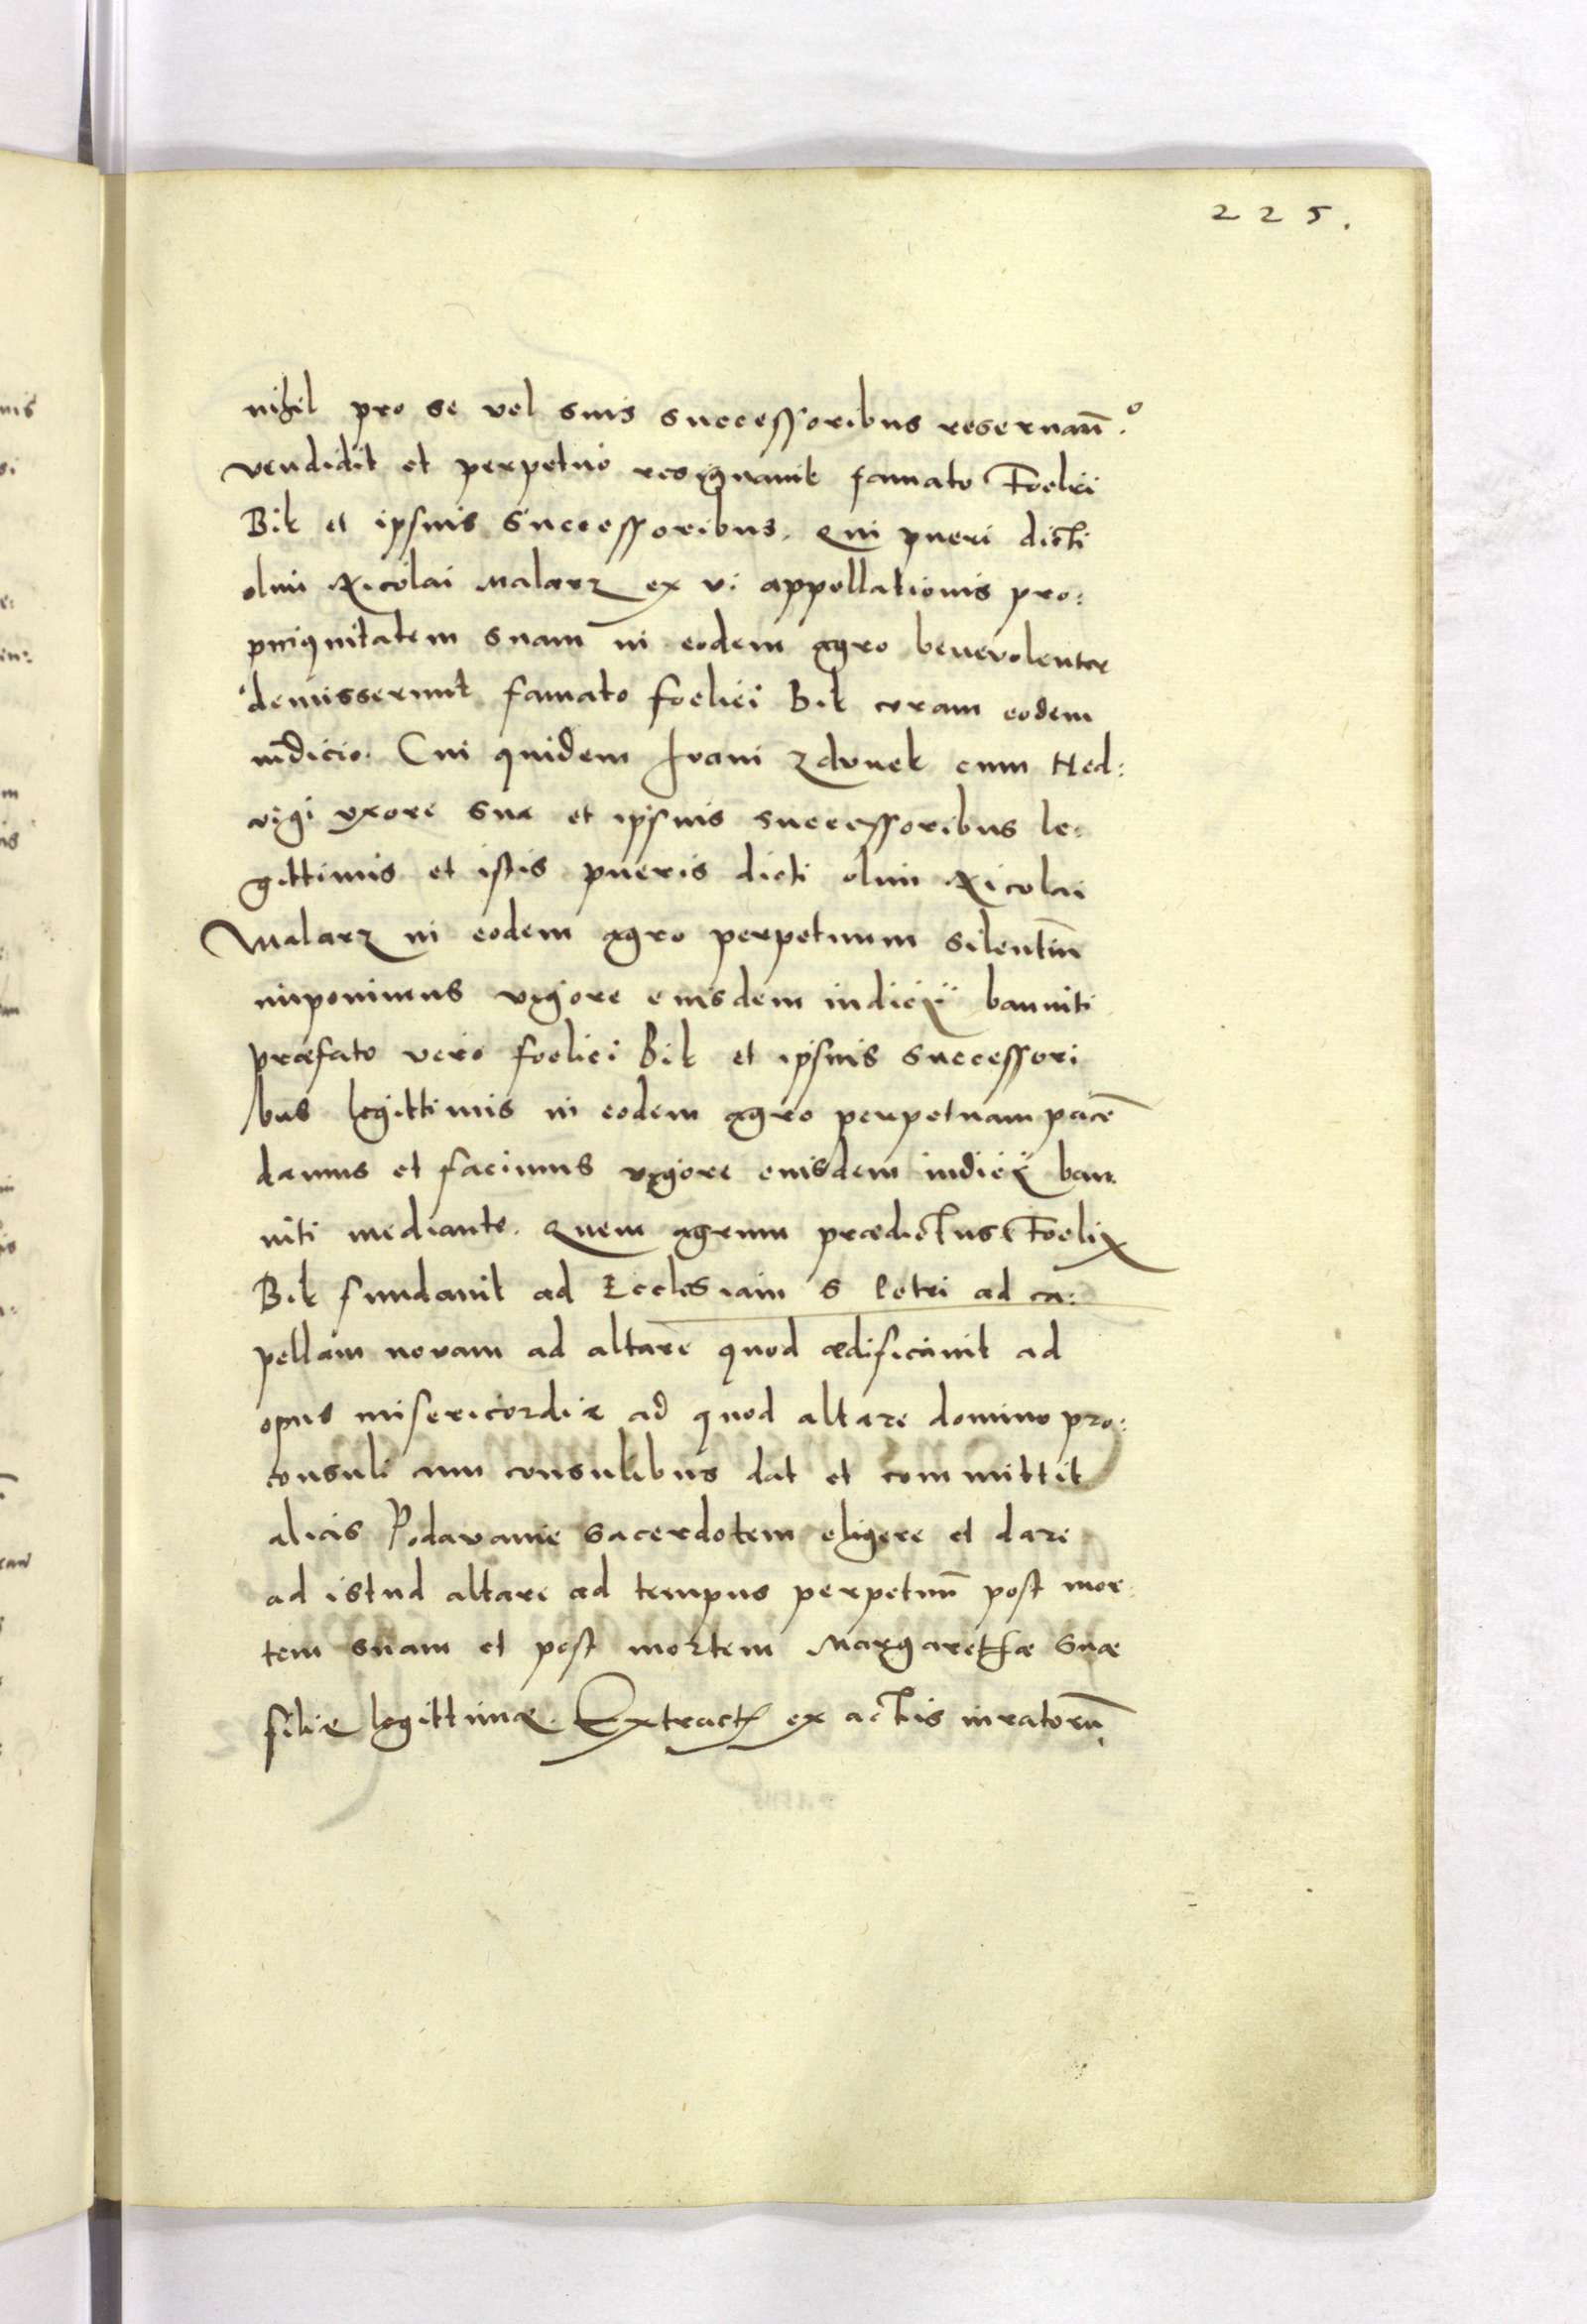 225.
nihil pro se vel suis successoribus reservan̄.º
vendidit et perpetuo resignavit famato Foelici
Bik et ipsuis Successoribus. Qui pueri dicti
olim Nicolai Malarz ex vi appellationis pro:
pinquitatem suam in eodem agro benevolenter
demisserunt famato foelici Bik coram eodem
iudicio. Cui quidem Ivani Zdunek cum Hed:
vigi uxore sua et ipsuis successoribus le:
gittimis et istis pueris dicti olim Nicolai
Malarz in eodem agro perpetuum silentiū
imponimus vigore eiusdem iudicÿ banniti
præfato vero foelici Bik et ipsuis successori
bus legittimis in eodem agro perpetuam pacē
damus et facimus vigore eiusdem iudicÿ ban:
niti mediante. Quem agrum prædictus Foelix
Bik fundavit ad Ecclesiam S Petri ad ca:
pellam novam ad altare quod ædificavit ad
opus misericordiæ ad quod altare domino pro:
consuli cum consulibus dat et committit
alias Podavanie sacerdotem eligere et dare
ad istud altare ad tempus perpetuū post mor:
tem suam et post mortem Margarethæ suæ
filiæ legittimæ. Extract ex actis iuratorū